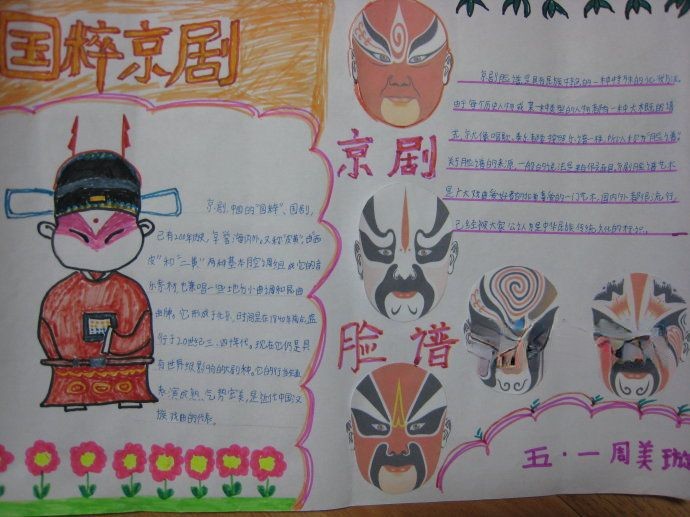 国粹京剧
京剧,中国的"国粹"、国剧,
已有200年历史,享誉海内外。又称"皮黄",由"西
皮"和"二黄"两种基本腔调组成它的音
乐素材,也兼唱一些地方小曲调和昆曲
曲牌。它形成于北京,时间是在1840年前后,盛
行于20世纪三、四十年代。现在它仍是具
有世界级影响的大剧种。它的行当全面、
表演成熟、气势宏美,是近代中国汉
族戏曲的代表。
京剧
脸谱
京剧脸谱是具有民族特色的一种特殊的化妆方法。
由于每个历史人物或某一种类型的人物都有一种大概的谱
式,就像唱歌、奏乐都要按照乐谱一样,所以称为"脸谱"。
关于脸谱的来源,一般的说法是来自假面具。京剧脸谱艺术
是广大戏曲爱好者的非常喜爱的一门艺术,国内外都很流行,
已经被大家公认为是中华民族传统文化的标识。
五·一 周美璇